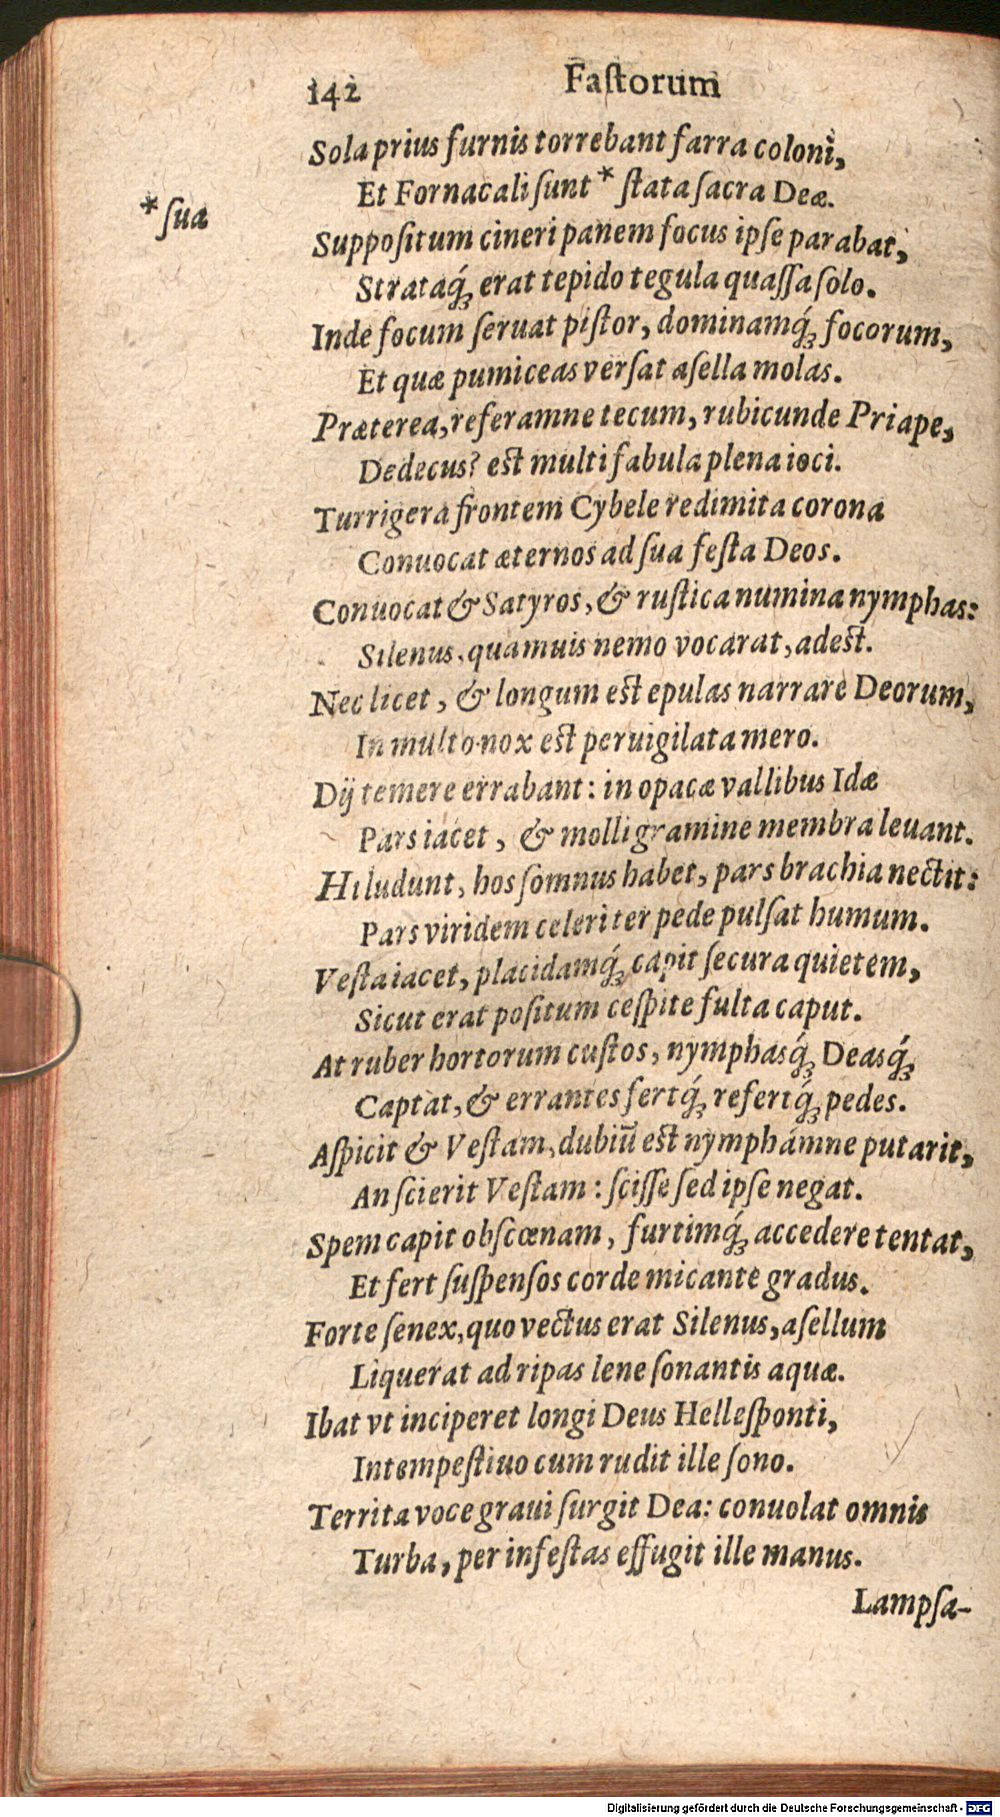 142 Faſtorum
Sola prius furnis torrebant farra coloni,
Et Fornacali ſunt * ſtata ſacra Deæ.
* ſua
Suppoſitum cineri panem focus ipſe parabat,
Strataq́; erat tepido tegula quaſſa ſolo.
Inde focum ſeruat piſtor, dominamq́; focorum,
Et quæ pumiceas verſat aſella molas.
Præterea, referamne tecum, rubicunde Priape,
Dedecus? eſt multi fabula plena ioci.
Turrigera frontem Cybele redimita corona
Conuocat æternos ad ſua feſta Deos.
Conuocat & Satyros, & ruſtica numina nymphas:
Silenus, quamuis nemo vocarat, adeſt.
Nec licet, & longum eſt epulas narrare Deorum,
In multo nox eſt peruigilata mero.
Dij temere errabant: in opacæ vallibus Idæ
Pars iacet, & molli gramine membra leuant.
Hi ludunt, hos ſomnus habet, pars brachia nectit:
Pars viridem celeriter pede pulſat humum.
Veſta iacet, placidamq́; capit ſecura quietem,
Sicut erat poſitum ceſpite fulta caput.
At ruber hortorum cuſtos, nymphasq́; Deasq́;
Captat, & errantes fertq́; refertq́; pedes.
Aſpicit & Veſtam, dubiũ eſt nymphámne putarit,
An ſcierit Veſtam: ſciſſe ſed ipſe negat.
Spem capit obſcœnam, furtimq́; accedere tentat,
Et fert ſuſpenſos corde micante gradus.
Forte ſenex, quo vectus erat Silenus, aſellum
Liquerat ad ripas lene ſonantis aquæ.
Ibat vt inciperet longi Deus Helleſponti,
Intempeſtiuo cum rudit ille ſono.
Territa voce graui ſurgit Dea: conuolat omnis
Turba, per infeſtas effugit ille manus.
Lampſa-
Digitalisierung gefördert durch die Deutsche Forschungsgemeinschaft - DFG